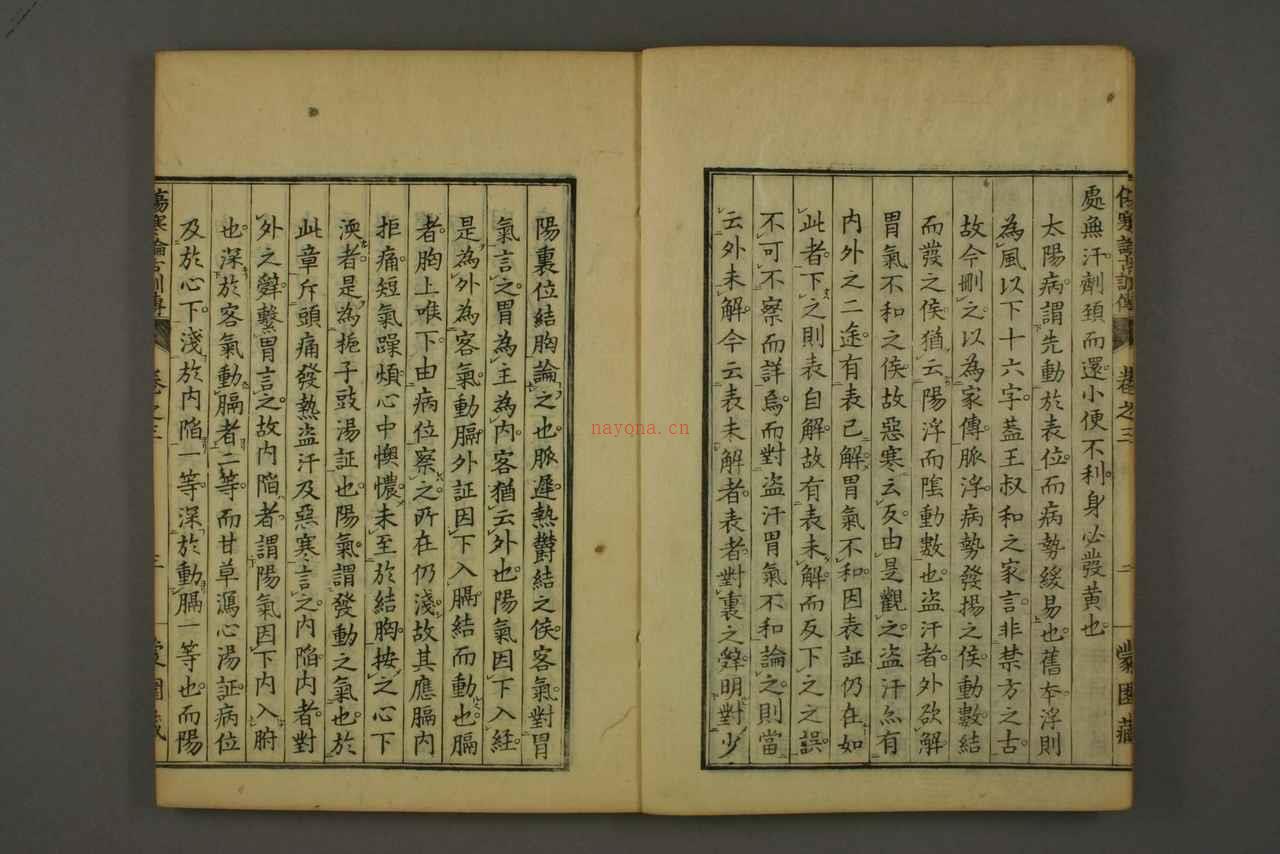 傷寒論古訓傳 卷之三 二 蒙園藏
處無汗劑頚而還小便不利身必發黄也
太陽病謂先動於表位而病勢緩易也舊本浮則
為風以下十六字蓋王叔和之家言非禁方之古
故今刪之以為家傳脈浮病勢發揚之候動數結
而發之候猶云陽浮而陰動數也盗汗者外欲解
胃氣不和之候故惡寒云反由是觀之盗汗亦有
内外之二途有表已解胃氣不和因表証仍在如
此者下之則表自解故有表未解而反下之之誤
不可不察而詳焉而對盗汗胃氣不和論之則當
云外未解今云表未解者表者對裏之辤明對少
陽裏位結胸論之也脈遲熱欝結之候客氣對胃
氣言之胃為主為内客猶云外也陽氣因下入経
是為外為客氣動膈外証因下入膈結而動也膈
者胸上唯下由病位察之所在仍淺故其應膈内
拒痛短氣躁煩心中懊憹未至於結胸按之心下
濡者是為梔子豉湯証也陽氣謂發動之氣也於
此章斥頭痛發熱盗汗及惡寒言之内陥内者對
外之辤繫胃言之故内陥者謂陽氣因下内入腑
也深於客氣動膈者二等而甘草瀉心湯証病位
及於心下淺於内陥一等深於動膈一等也而陽
傷寒論古訓傳 卷之三 三 蒙園藏
nayona.cn